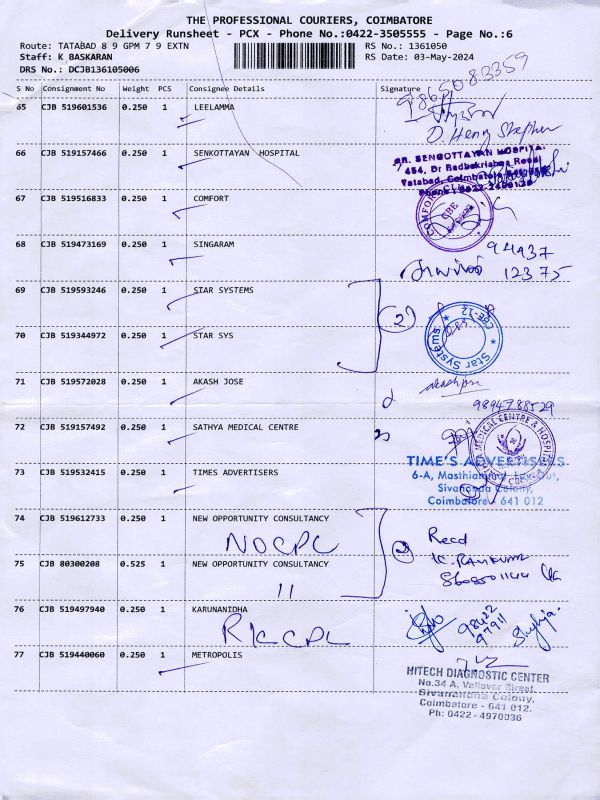 THE PROFESSIONAL COURIERS, COIMBATORE
Delivery Runsheet - PCX - Phone No.:0422-3505555 - Page No.:6
Route: TATABAD 8 9 GPM 7 9 EXTN
RS No.: 1361050
Staff: K BASKARAN
RS Date: 03-May-2024
DRS No.: DCJB136105006
S No Consignment No Weight PCS Consignee Details Signature
9865083359
65 CJB 519601536 0.250 1 LEELAMMA
D. Heny Stephen
66 CJB 519157466 0.250 1 SENKOTTAYAN HOSPITAL
DR. SENGOTTAYAN HOSPITAL
454, Dr Radhakrishna Road
Tatabad, Coimbatore
67 CJB 519516833 0.250 1 COMFORT
COMFORT
CBE
68 CJB 519473169 0.250 1 SINGARAM
94437
12375
69 CJB 519593246 0.250 1 STAR SYSTEMS
2
70 CJB 519344972 0.250 1 STAR SYS
Star Systems
CBE-12
71 CJB 519572028 0.250 1 AKASH JOSE
9894788529
72 CJB 519157492 0.250 1 SATHYA MEDICAL CENTRE
MEDICAL CENTRE & HOSPITAL
73 CJB 519532415 0.250 1 TIMES ADVERTISERS
TIME'S ADVERTISERS
6-A,
Sivananda Colony,
Coimbatore - 641 012
74 CJB 519612733 0.250 1 NEW OPPORTUNITY CONSULTANCY
NOCPL
Recd
75 CJB 80300208 0.525 1 NEW OPPORTUNITY CONSULTANCY
11
76 CJB 519497940 0.250 1 KARUNANIDHA
98422
97911
77 CJB 519440060 0.250 1 METROPOLIS
HITECH DIAGNOSTIC CENTER
No.34 A, Valluvar Street,
Sivanandha Colony,
Coimbatore - 641 012.
Ph: 0422 - 4970036